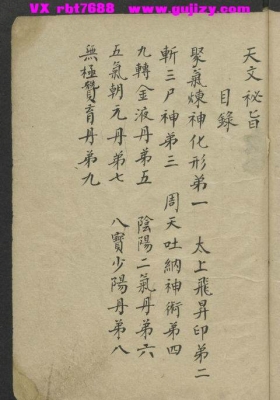 VX rbt7688  www.gujizy.com
天文秘旨
目錄
聚氣煉神化形第一 太上飛昇印第二
斬三尸神第三 周天吐納神術第四
九轉金液丹第五 陰陽二氣丹第六
五氣朝元丹第七 八寶少陽丹第八
無極贊育丹第九